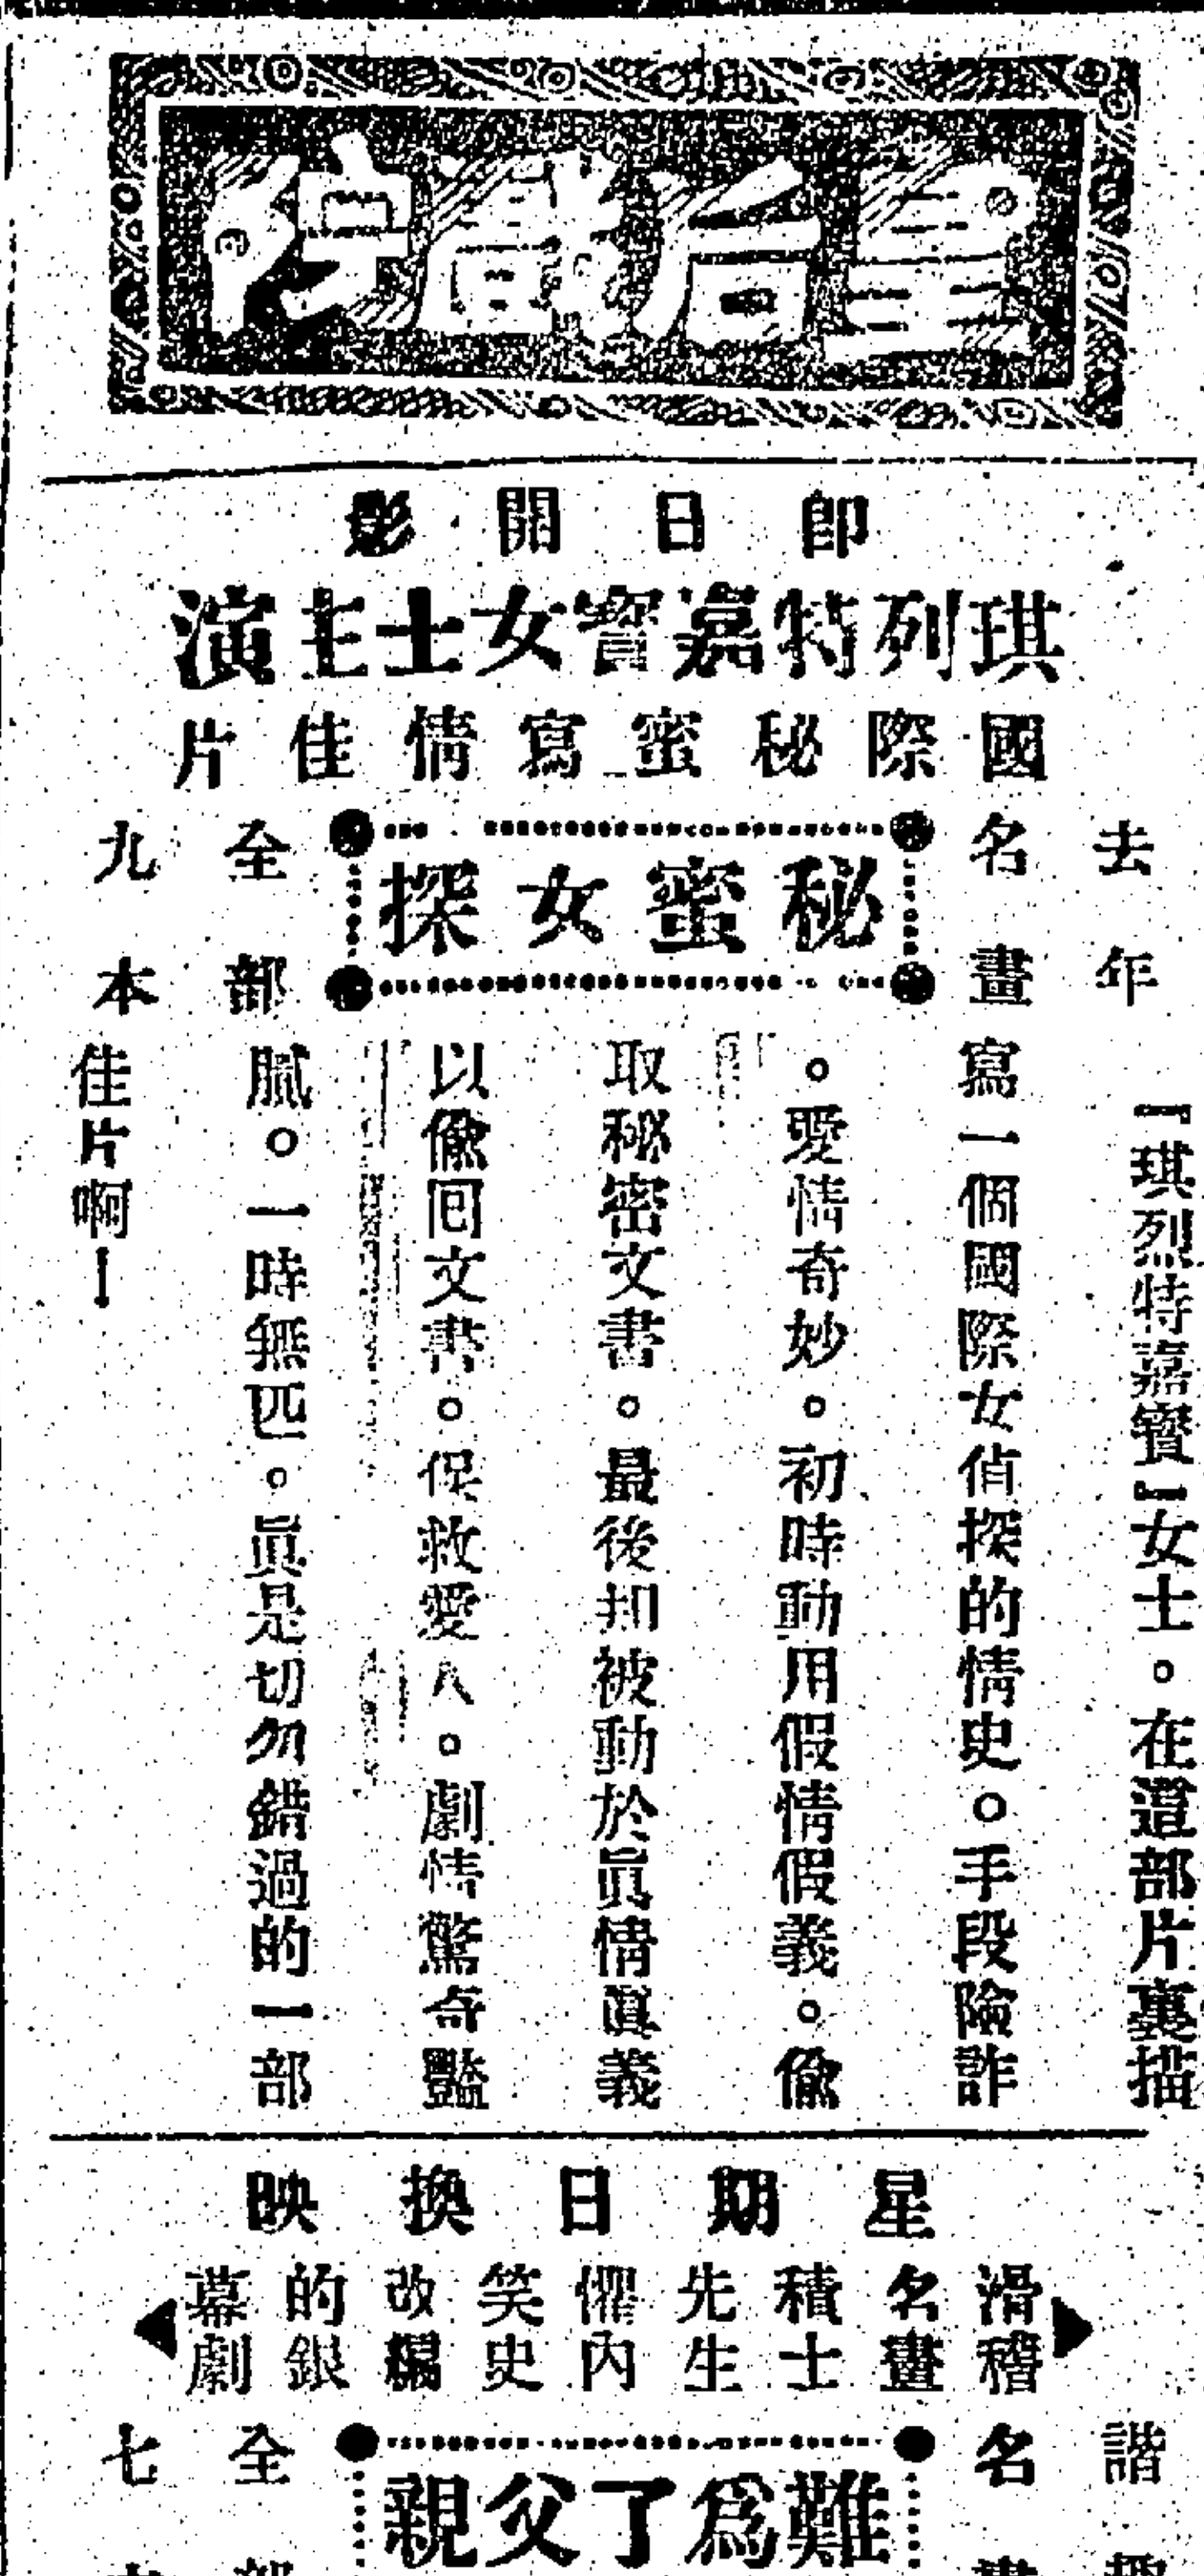 皇后戲院
即日開影
琪列特嘉寶女士主演
國際秘蜜寫情佳片
去年
名畫
秘蜜女探
全部
九本
『琪烈特嘉寶』女士。在這部片裏描
寫一個國際女偵探的情史。手段險詐
。愛情奇妙。初時動用假情假義。偸
取秘密文書。最後却被動於眞情眞義
以偸囘文書。保救愛人。劇情驚奇豔
膩。一時無匹。眞是切勿錯過的一部
佳片啊！
星期日換映
滑稽
名畫
積士
先生
懼內
笑史
改編
的銀
幕劇
諧
名
難爲了父親
全
七